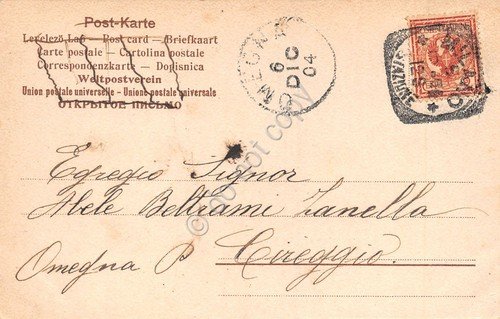 Post-Karte
Levelező-Lap — Post card — Briefkaart
Carte postale — Cartolina postale
Correspondenzkarte — Dopisnica
Weltpostverein
Union postale universelle - Unione postale universale
ОТКРЫТОЕ ПИСЬМО
OMEGNA
6
DIC
04
MILANO
Egregio Signor
Abele Beltrami Zanella
Omegna P Cireggio